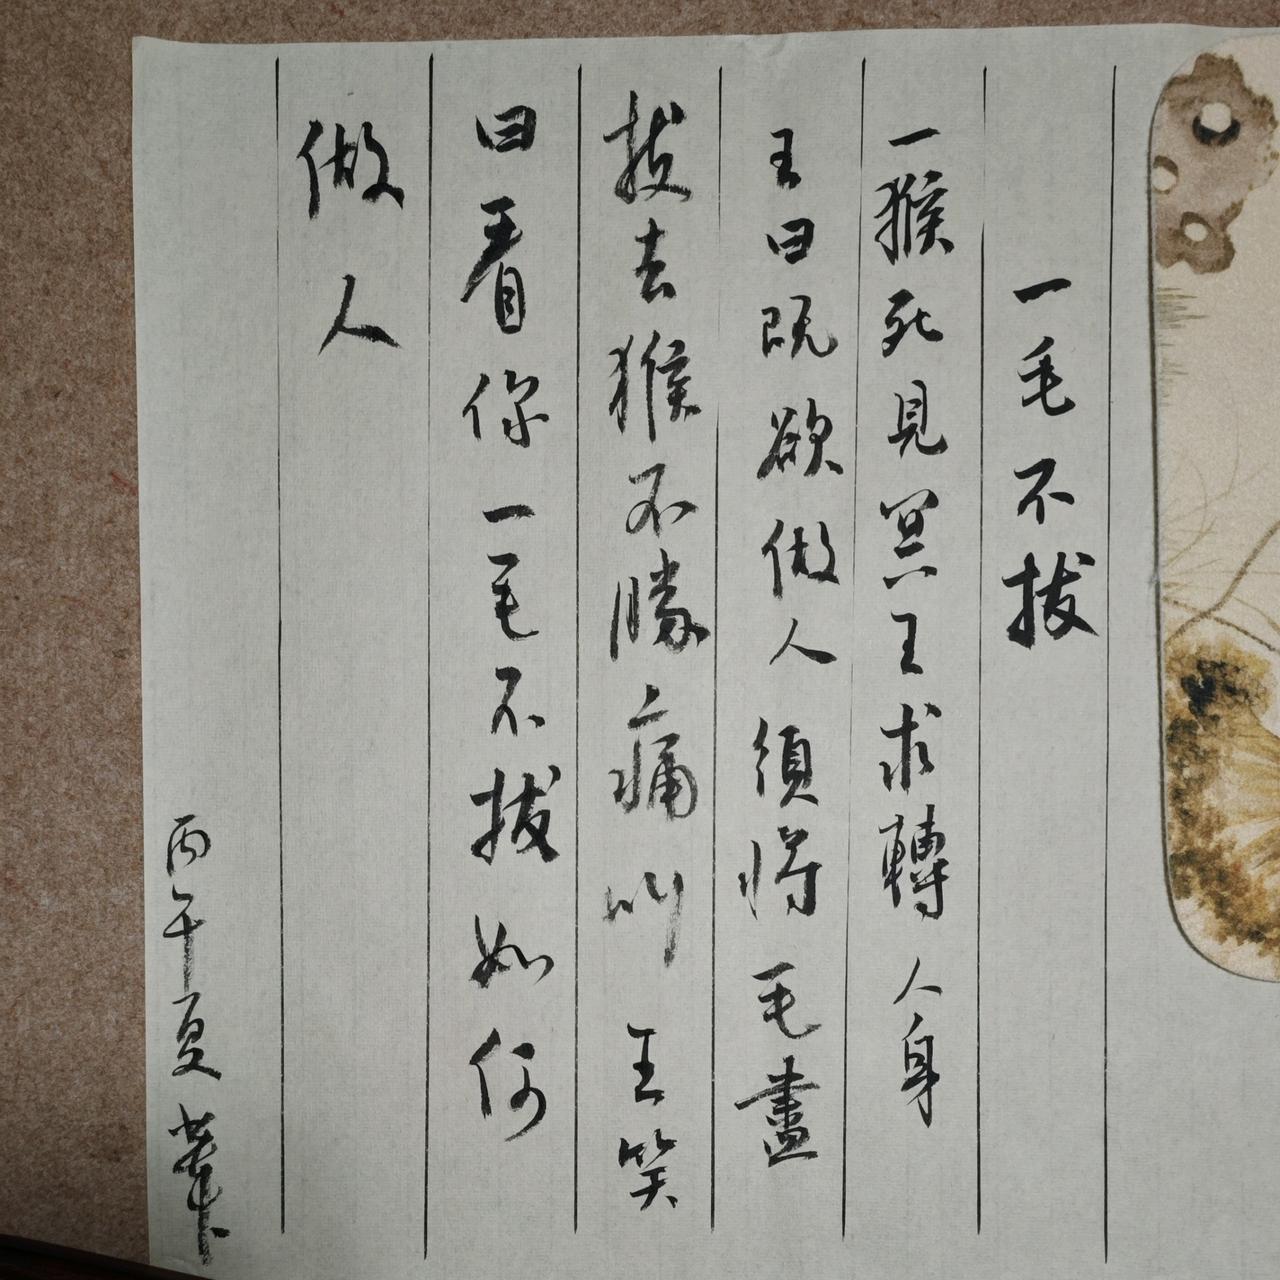 一毛不拔
一猴死見冥王求轉人身
王曰既欲做人須將毛盡
拔去猴不勝痛叫王笑
曰看你一毛不拔如何
做人
丙午夏